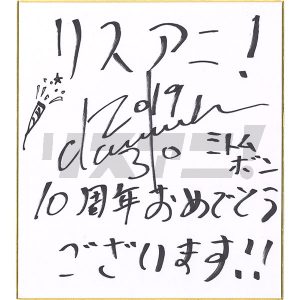 リスアニ!
2019
30
ミトム
ボン
10周年おめでとう
ございます!!
リスアニ!